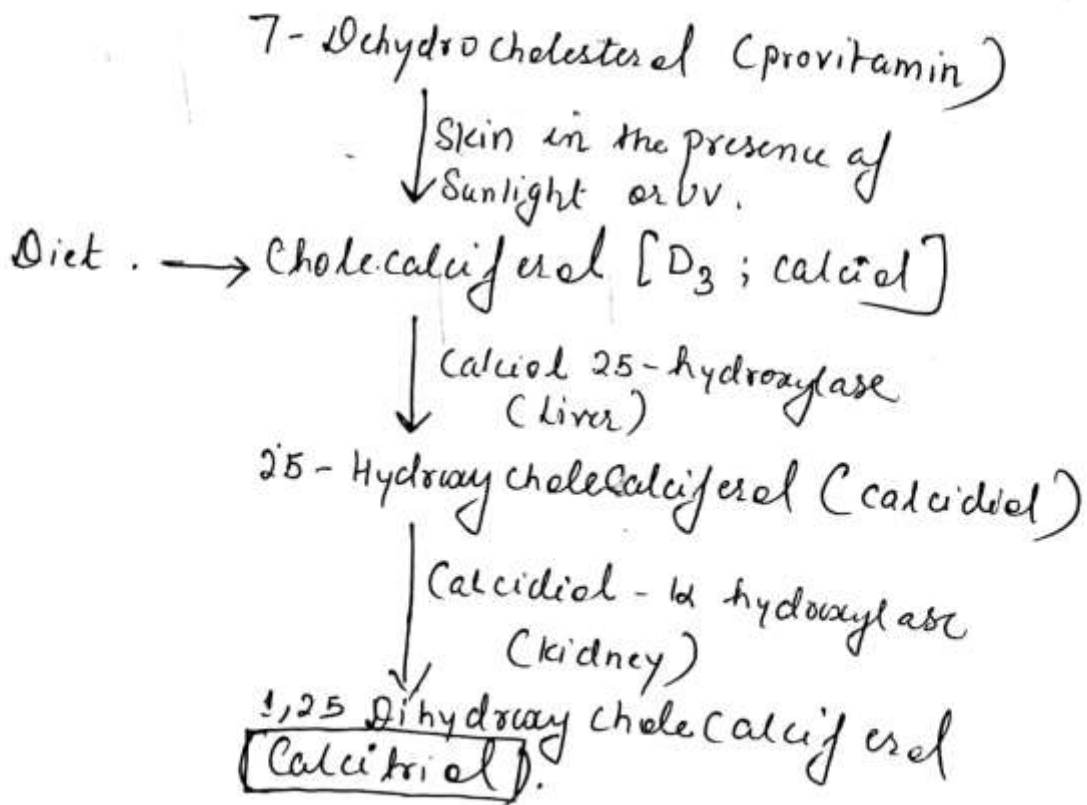 7-Dehydrocholesterol (provitamin)
Skin in the presence of
Sunlight or UV.
Diet. → Cholecalciferol [D3 ; calciol]
Calciol 25-hydroxylase
(Liver)
25-Hydroxycholecalciferol (calcidiol)
Calcidiol-1α hydroxylase
(Kidney)
1,25 Dihydroxycholecalciferol
Calcitriol.